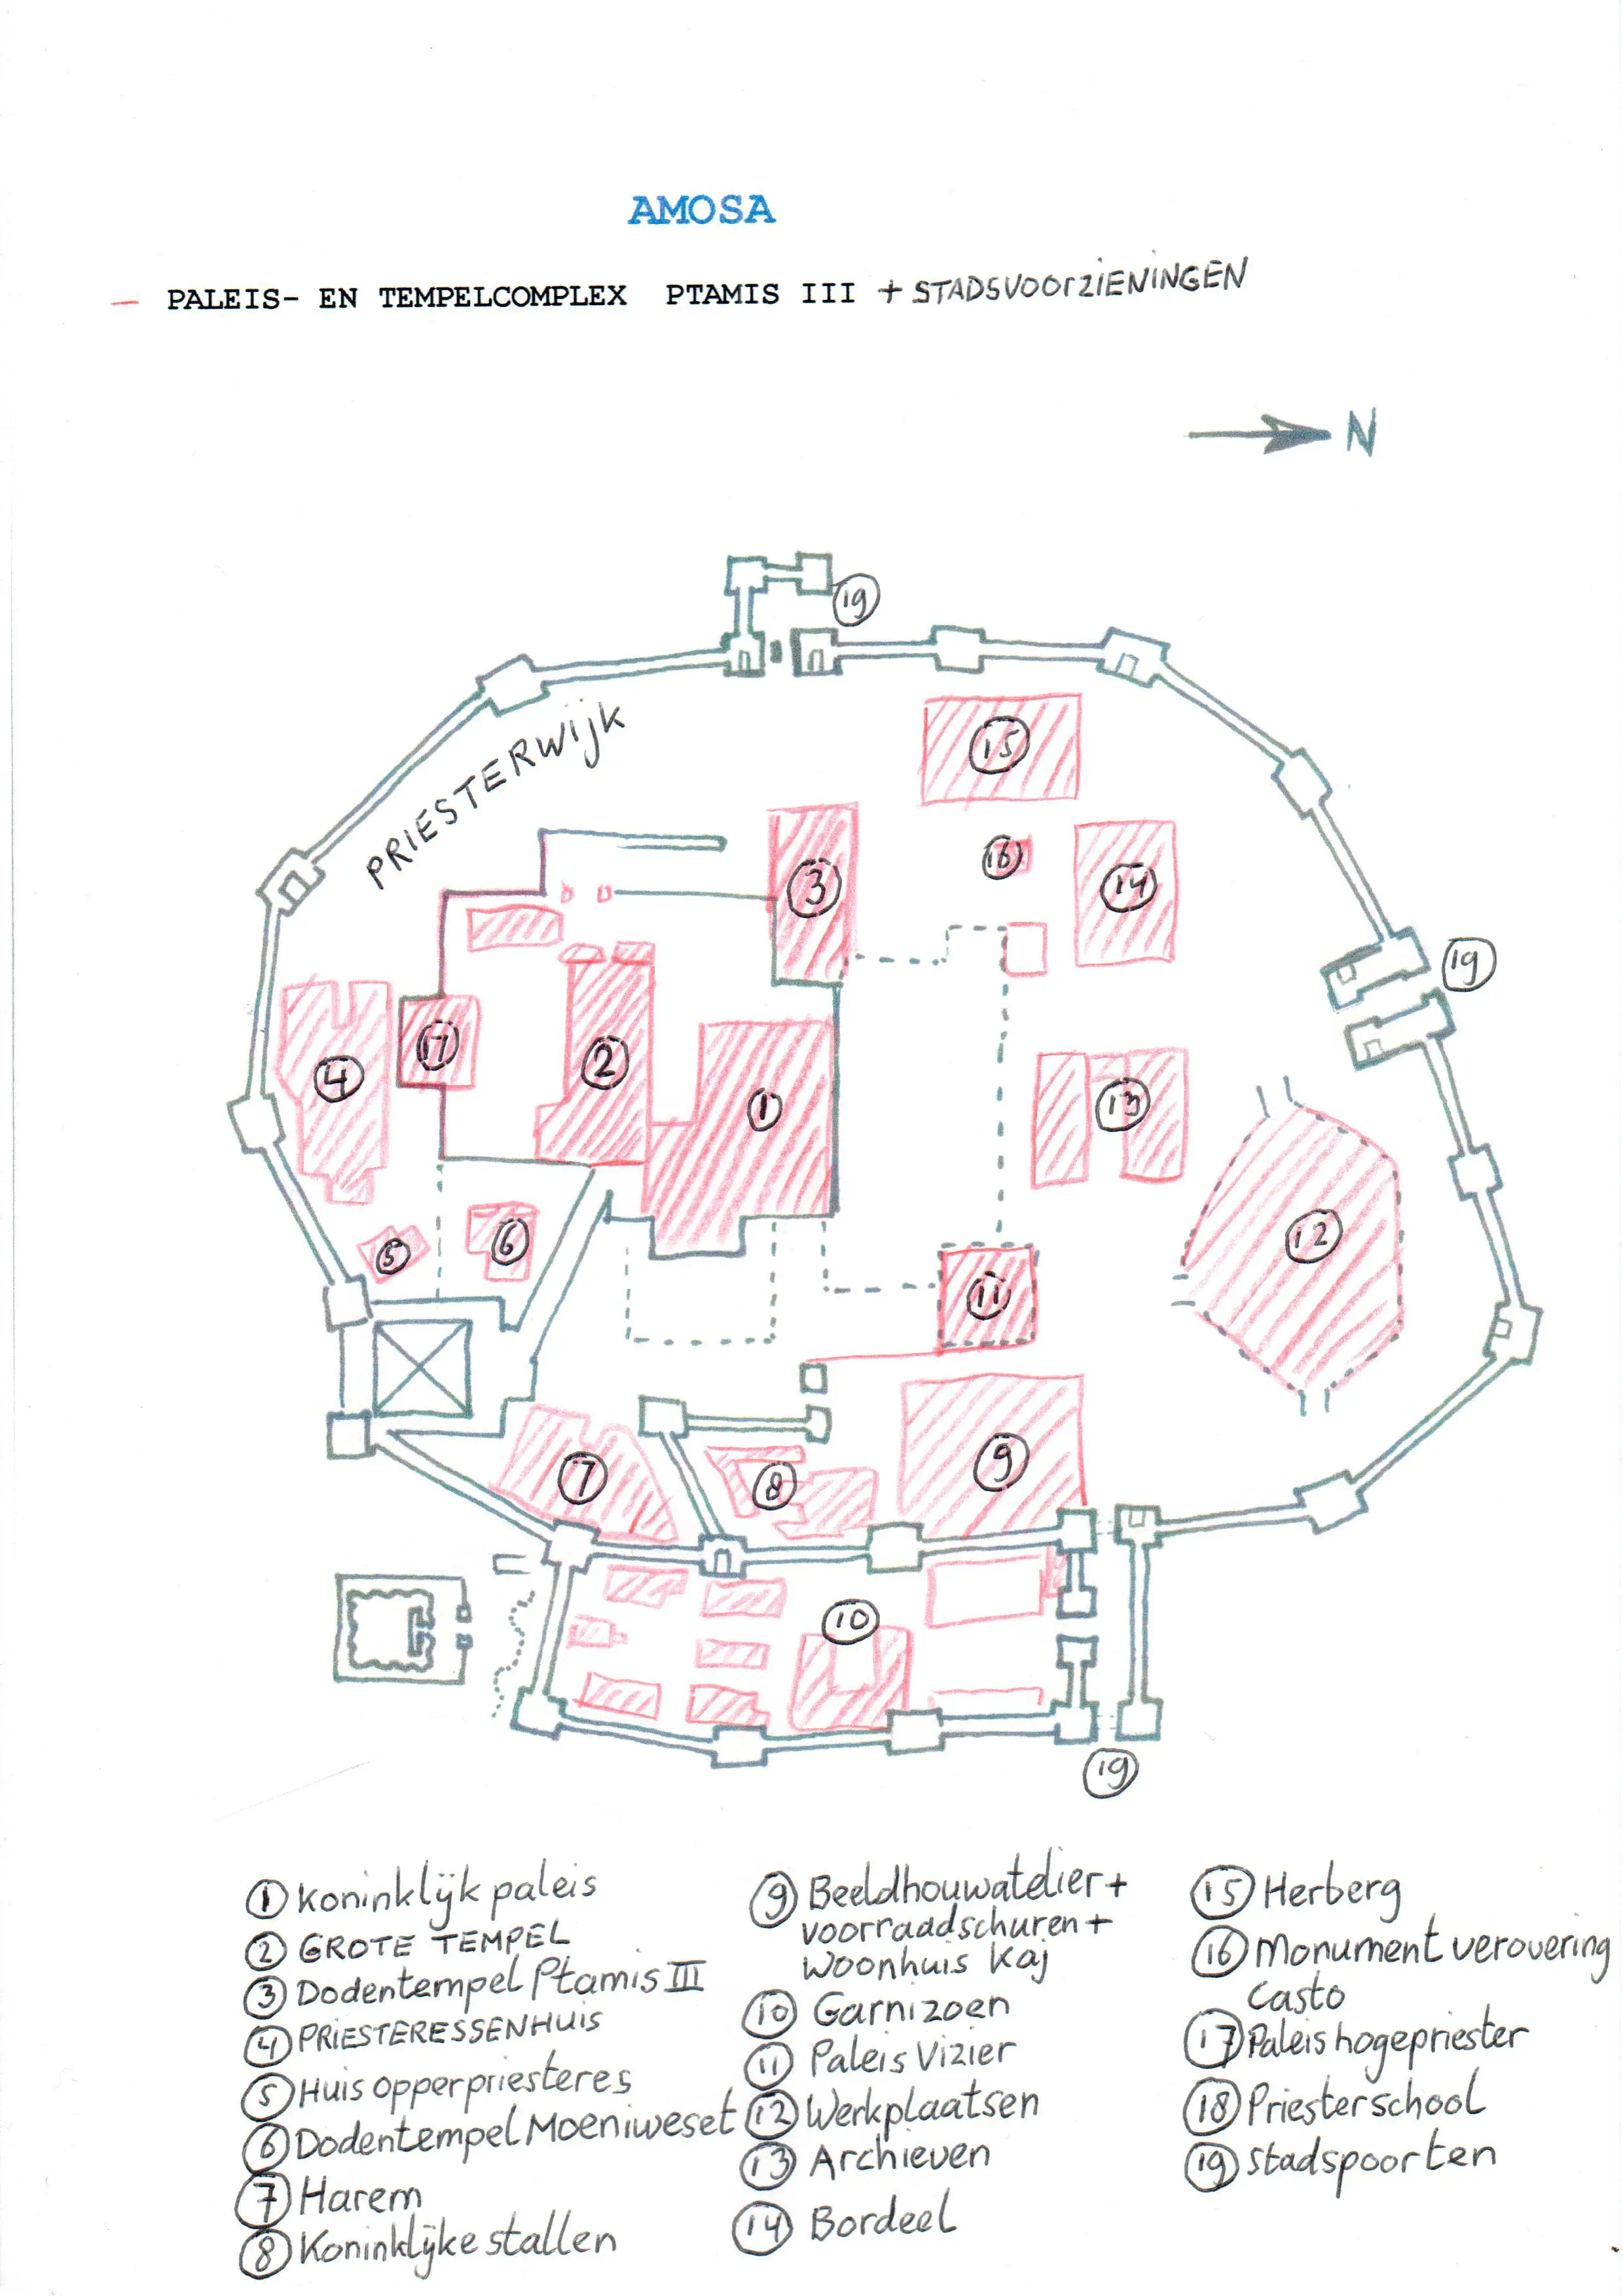 AMOSA
— PALEIS- EN TEMPELCOMPLEX PTAMIS III + STADSVOORZIENINGEN
N
19
PRIESTERWIJK
15
3
16
14
19
4
17
2
1
13
5
6
11
12
7
8
9
10
19
1 Koninklijk paleis
2 GROTE TEMPEL
3 Dodentempel Ptamis III
4 PRIESTERESSENHUIS
5 Huis opperpriesteres
6 Dodentempel Moeniweset
7 Harem
8 Koninklijke stallen
9 Beeldhouwatelier +
voorraadschuren +
Woonhuis Kaj
10 Garnizoen
11 Paleis Vizier
12 Werkplaatsen
13 Archieven
14 Bordeel
15 Herberg
16 Monument verovering
Casto
17 Paleis hogepriester
18 Priesterschool
19 Stadspoorten